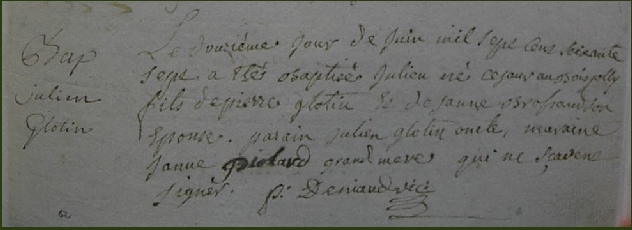 Bap
julien
Glotin
Le douziéme jour de juin mil sept cens soixante
sept a etés baptisé julien né ce jour au bois jolly
fils de pierre glotin et de janne
epouse. parain julien glotin oncle, maraine
janne piolard grand mere qui ne sçavene
signer. p: Deniaud vic